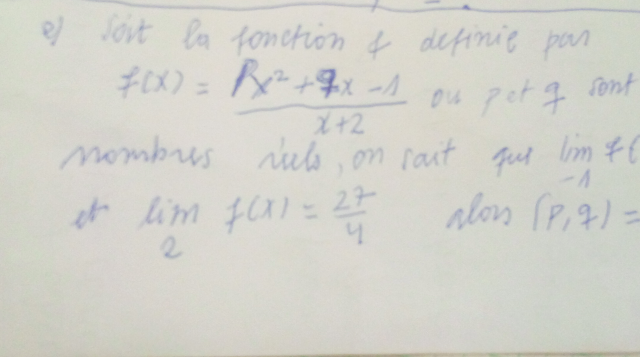 e) Soit la fonction f definie par
f(x) = px² + qx - 1 / x+2 ou p et q sont
nombres réels, on sait que lim f(
-1
et lim f(x) = 27/4 alors (p, q) =
2